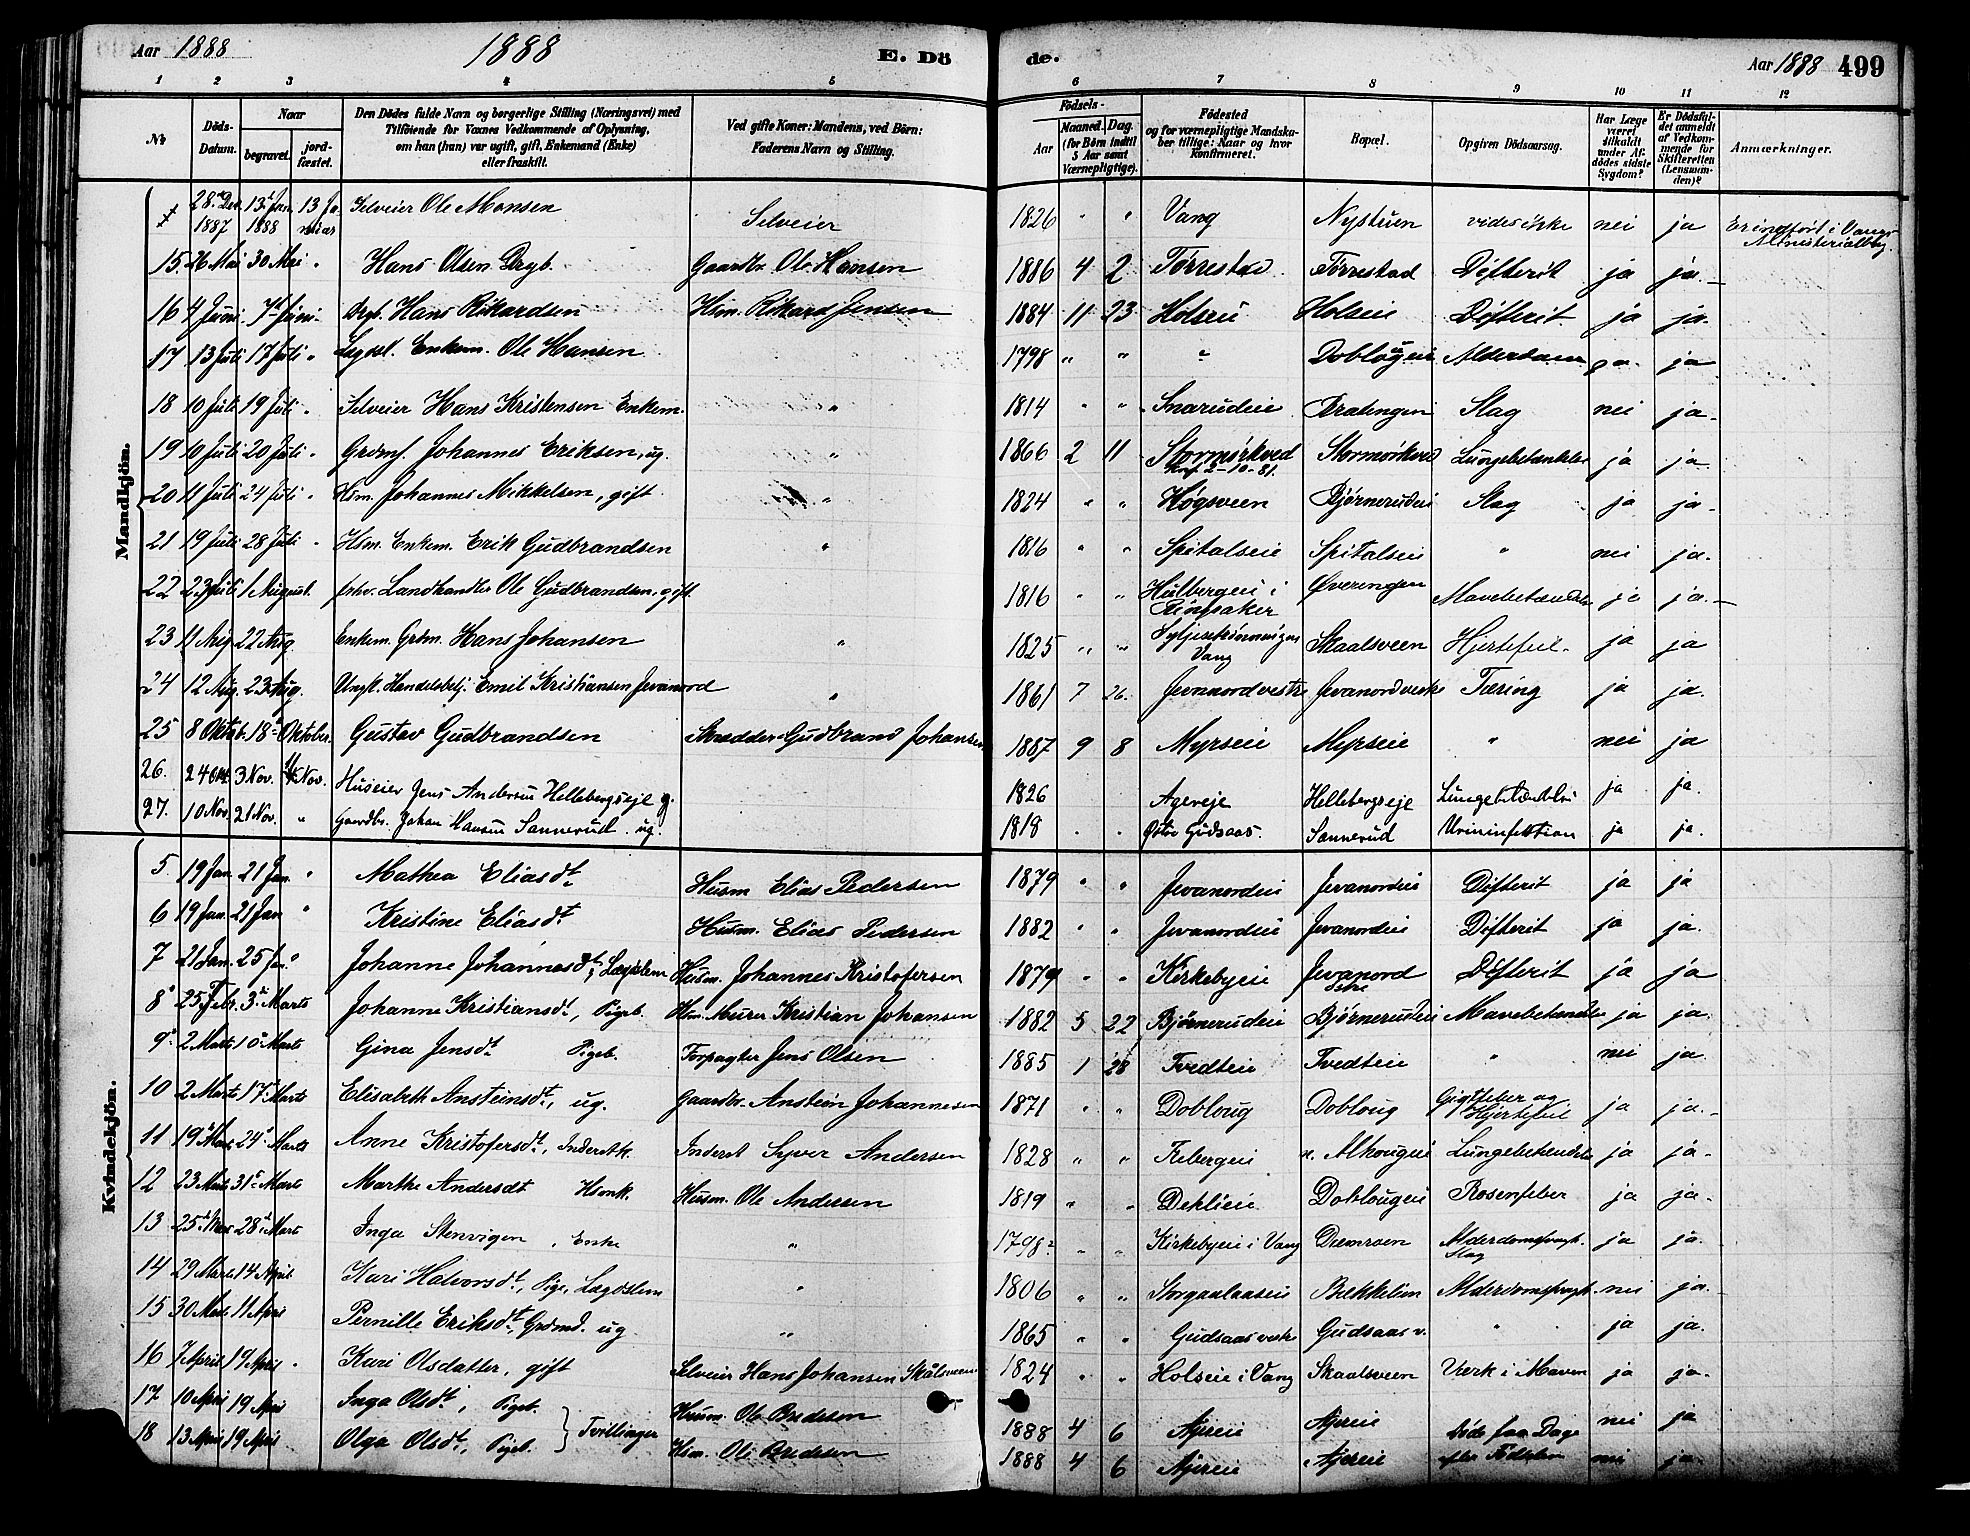 Aar 1888 1888 E. Dö
de. Aar 1888 499
1 2 3 4 5 6 7 8 9 10 11 12
No Döds-Datum. Naar begravet. jordfæstet. Den Dödes fulde Navn og borgerlige Stilling (Næringsvei) med Tilföiende for Voxnes Vedkommende af Oplysning, om han (hun) var ugift, gift, Enkemand (Enke) eller fraskilt. Ved gifte Koner: Mandens, ved Börn: Faderens Navn og Stilling. Födsels- Aar Maaned. Dag. (for Börn indtil 5 Aar samt Værnepligtige). Födested og for værnepligtige Mandskaber tillige: Naar og hvor Konfirmeret. Bopæl. Opgiven Dödsaarsag. Har Læge været tilkaldt under Afdödes sidste Sygdom? Er Dödsfaldet anmeldt af Vedkommende for Skifteretten (Lensmanden)? Anmærkninger.
Mandkjön.
28. Dec. 1887 13. Jan. 1888 13 Ja. Selveier Ole Monsen Selveier 1826 " " Vang Nystuen vides ikke nei ja Er indført i Vangs Ministerialbog
15. 26 Mai 30 Mai " Hans Olsen Drgb. Gaardbr. Ole Hansen 1886 4 2 Torrestad Torrestad Difterit ja ja.
16 4 Juni 7 Juni Drgb. Hans Rikardsen Hsm. Rikard Jensen 1884 11 23 Holseie Holseie Difterit ja ja.
17 13 Juli 17 Juli " Lægdsl. Enkem. Ole Hansen 1798 " " " Doblougeie Alderdom ja
18 10 Juli 19 Juli " Selveier Hans Kristensen Enkem. " 1814 " " Snarudeie Bratengen Slag nei ja.
19 10 Juli 20 Juli " Grdmf. Johannes Eriksen, ug. " 1866 2 11 Stormørkved Konf. 2-10-81. Stormørkved Lungebetændelse ja ja.
20 11 Juli 24 Juli " Hsm. Johannes Mikkelsen, gift " 1824 " " Høgsveen Bjørnerudeie Slag ja ja.
21 19 Juli 28 Juli " Hsm. Enkem. Erik Gudbrandsen " 1816 " " Spitalseie Spitalseie " nei ja.
22 23 Juli 1 August. forhv. Landhandler Ole Gudbrandsen, gift 1816 " " Hulbergeie i Ringsaker Øverengen Mavebetændelse ja ja.
23 11 Aug 22 Aug Enkem. Grdm. Hans Johansen " 1825 " " Vang Skaalsveen Hjertefeil ja ja
24 12 Aug. 23 Aug. Ungk. Handelsbetj. Emil Kristiansen Jevanord " 1861 7 26. Jevanord vestre Jevanord vestre Tæring ja ja.
25 8 Oktob. 18. Oktober. Gustav Gudbrandsen Skrædder Gudbrand Johansen 1887 9 8 Myrseie Myrseie " nei ja
26. 24 Okt. 3 Nov. Nov. Huseier Jens Andersen Hellebergseje g. 1826 Agereje Hellebergseje Lungebetændelse ja ja.
27. 10 Nov. 21 Nov. " Gaardbr. Johan Hansen Sannerud ug. 1818 " " Østre Gudsaas. Sannerud Urininfektion ja ja.
Kvindekjön.
5. 19 Jan. 21 Jan. " Mathea Eliasdt. Husm Elias Pedersen 1879 " " Jevanordeie Jevanordeie Difterit ja ja
6 19 Jan. 21 Jan " Kristine Eliasdt. Husm. Elias Pedersen 1882 " " Jevanordeie Jevanordeie Difterit ja ja.
7 21 Jan. 25 Jan. " Johanne Johannesdt, Lægdslem Husm. Johannes Kristofersen 1879 " " Kirkebyeie Jevanord Difterit ja ja
8 25 Febr. 3. Marts Johanne Kristiansdt, Pigeb. Hsm. Murer Kristian Johansen 1882 5 22 Bjørnerudeie Bjørnerudeie Mavebetændelse ja ja.
9. 2 Marts 10. Marts Gina Jensdt. Pigeb. Forpagter Jens Olsen 1885 1 28 Tvedteie Tvedteie " nei ja
10 2 Marts 17. Marts Elisabeth Ansteinsdt, ug. Gaardbr. Anstein Johannesen 1871 " " Dobloug Dobloug Gigtfeber og Hjertefeil ja ja.
11 19 Marts 24. Marts Anne Kristofersdt, Inderstk. Inderst Syver Andersen 1828 " " Kebergeie n. Alhougeie Lungebetændelse ja ja.
12 23 Marts 31. Marts Marthe Andersdt Hsmk. Husm. Ole Andersen 1819 " " Dehlieie Doblougeie Rosenfeber ja ja.
13 25. Mars 28. Marts Inga Stenvigen, Enke " 1798. " " Kirkebyeie i Vang Diemroen Alderdomssvagh. Slag ja ja.
14 29 Marts 14 April Kari Halvorsdt, Pige, Lægdslem " 1806 " " Storgaalaaseie Bækkelien Alderdomssvagh. nei ja.
15 30 Marts 11 April Pernille Eriksdt, Grdmd. ug. " 1865 " " Gudsaas vestre Gudsaas v. " ja ja.
16 7 April 19 April " Kari Olsdatter, gift Selveier Hans Johansen Skålsveen 1824 " " Holseie i Vang Skaalsveen Værk i Maven ja ja.
17 10 April 19 April Inga Olsdt, Pigeb. } Tvillinger Husm. Ole Bredesen 1888 4 6 Ajereie Ajereie Døde faa Dage nei ja
18 13 April 19 April Olga Olsdt, Pigeb. Hsm. Ole Bredesen 1888 4 6 Ajereie Ajereie efter Fødselen nei ja.